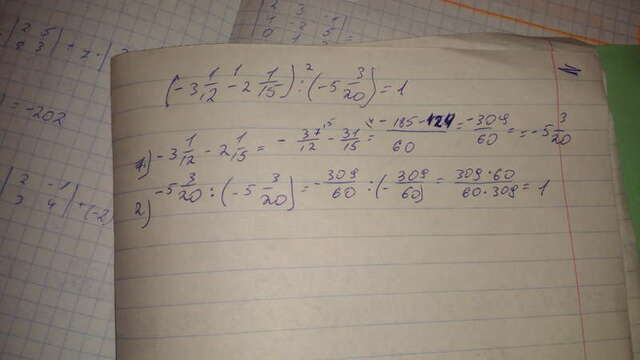 (-3 1/12 - 2 1/15) : (-5 3/20) = 1
1) -3 1/12 - 2 1/15 = - 37/12 - 31/15 = -185-124/60 = -309/60 = -5 3/20
2) -5 3/20 : (-5 3/20) = -309/60 : (-309/60) = 309·60/60·309 = 1
= -202
2 -1
3 4 + (-2)